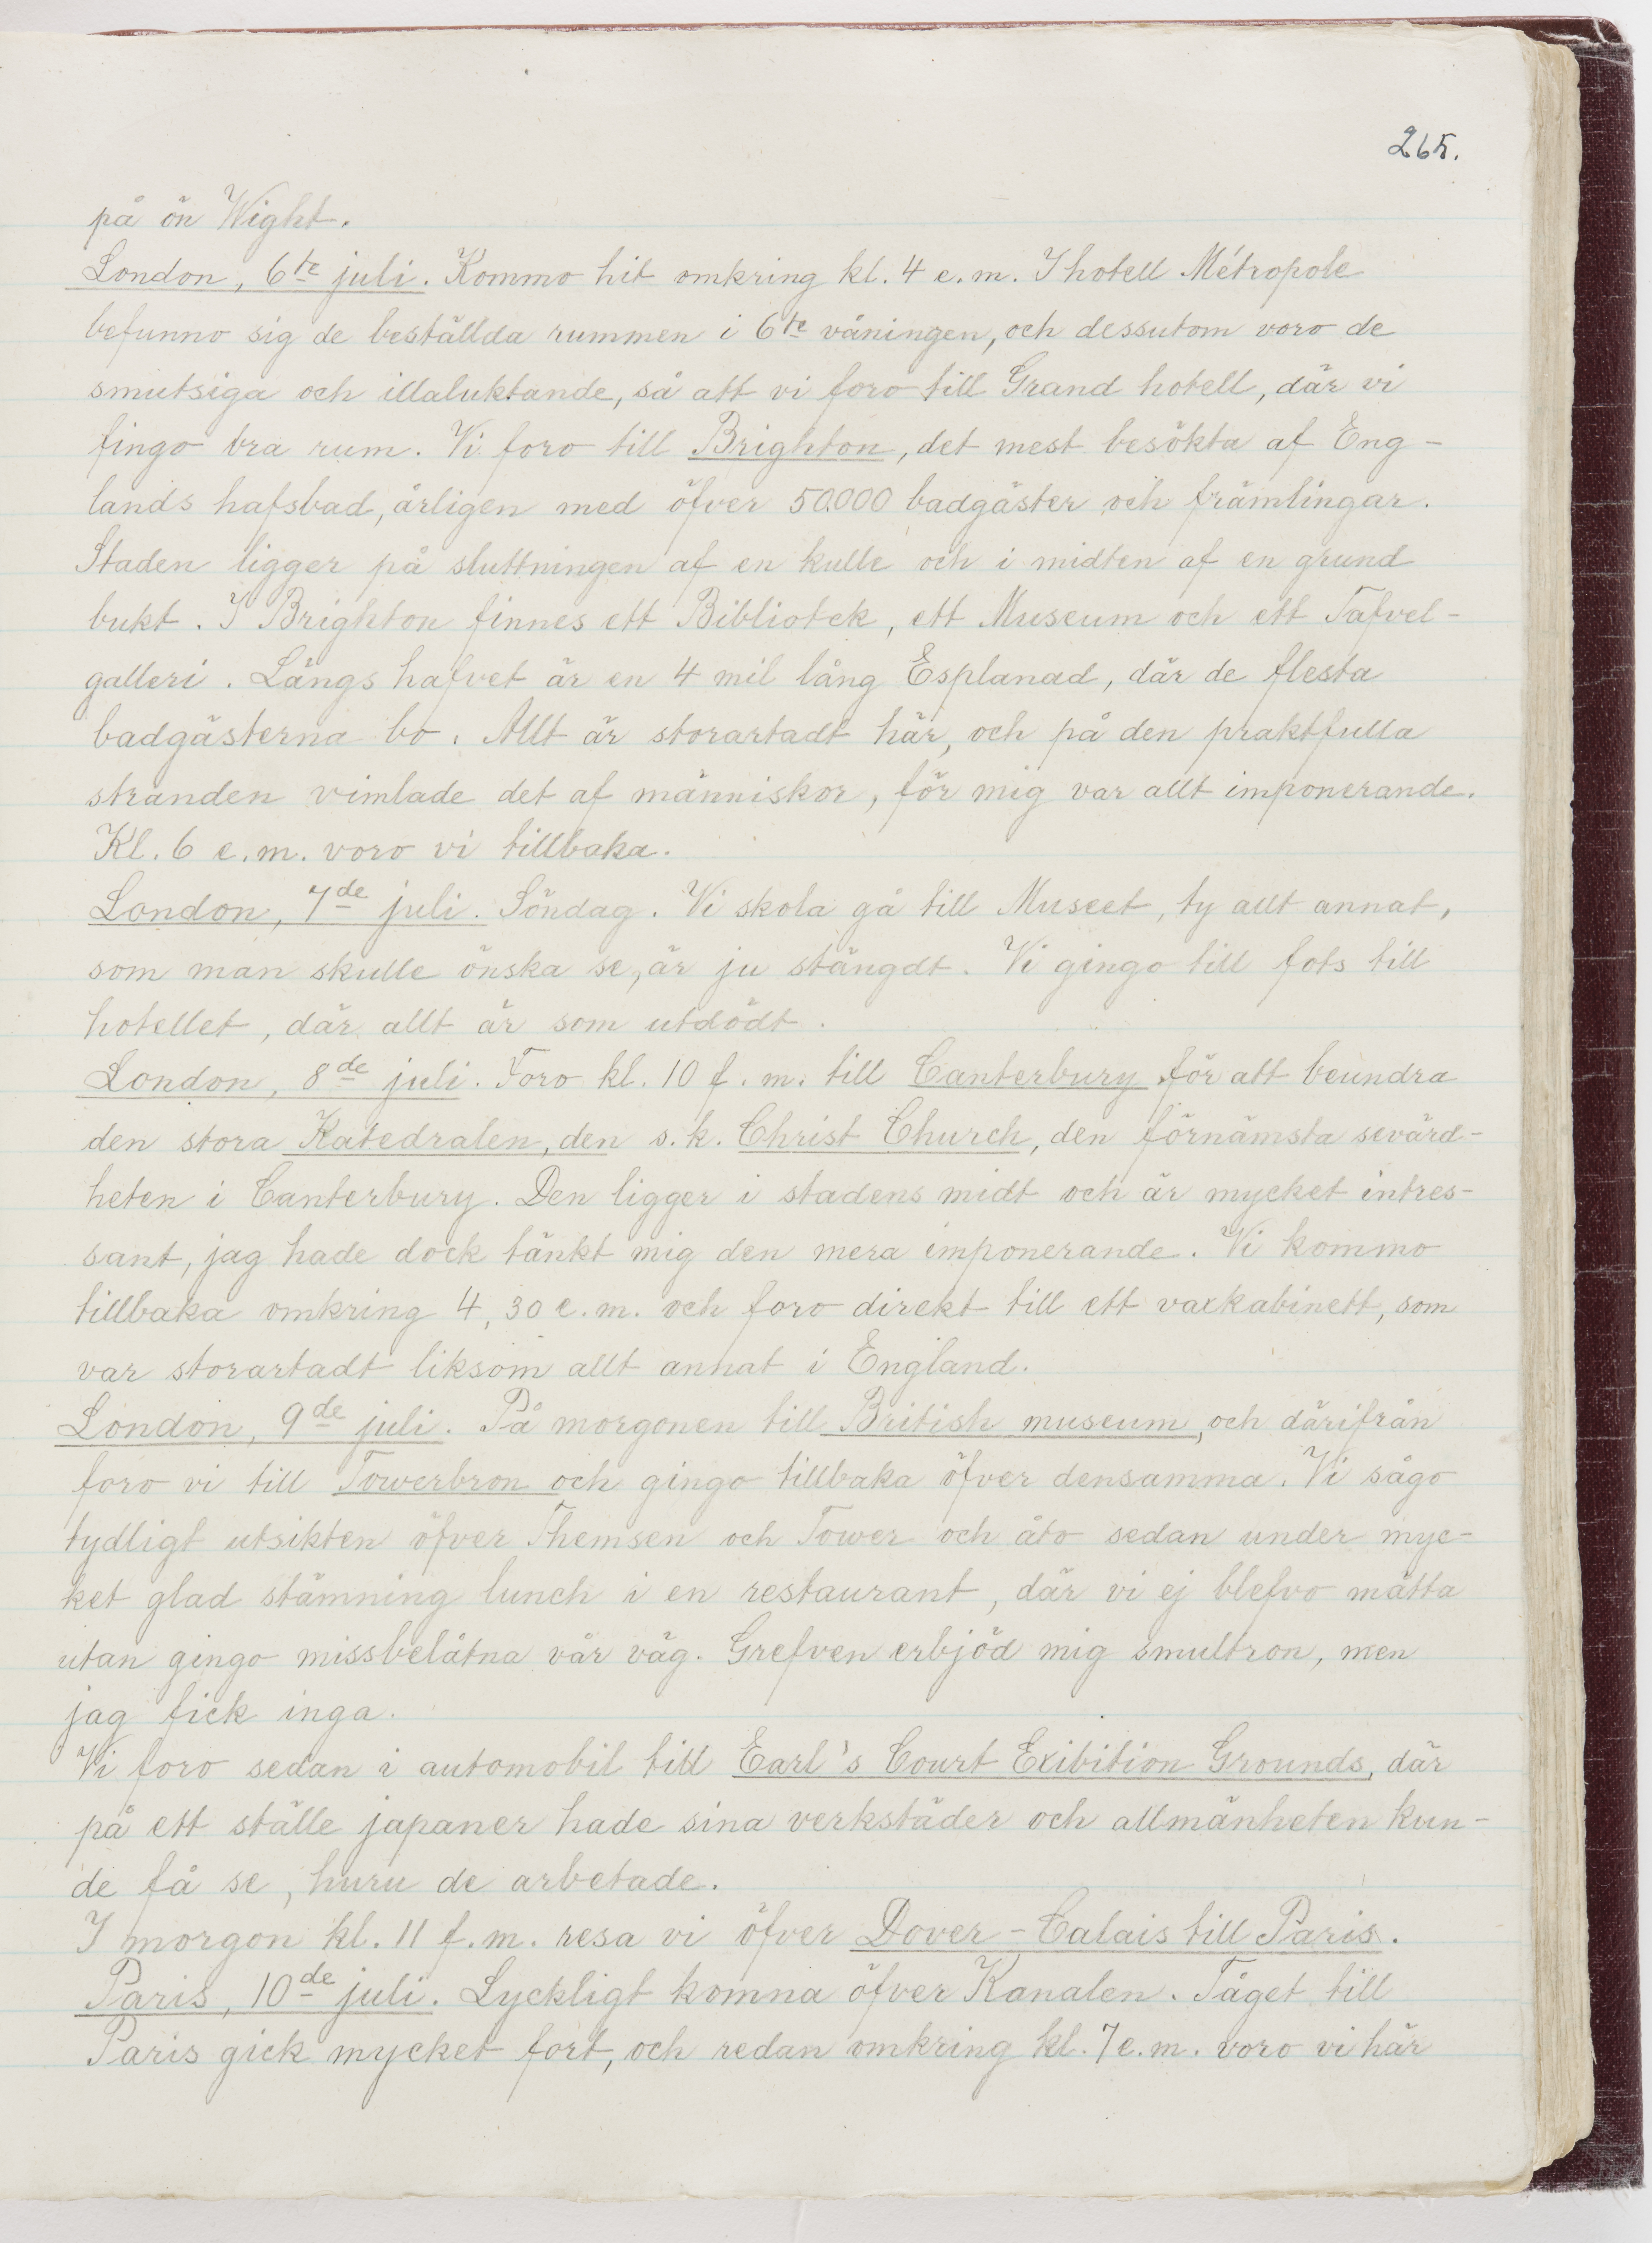 265.
på ön Wight.
London, 6te juli. Kommo hit omkring kl. 4 e.m. I hotell Métropole
befunno sig de beställda rummen i 6te våningen, och dessutom voro de
smutsiga och illaluktande, så att vi foro till Grand hotell, där vi
fingo bra rum. Vi foro till Brighton, det mest besökta af Eng-
lands hafsbad, årligen med öfver 50.000 badgäster och främlingar.
Staden ligger på sluttningen af en kulle och i midten af en grund
bukt. I Brighton finnes ett Bibliotek, ett Museum och ett Tafvel-
galleri. Längs hafvet är en 4 mil lång Esplanad, där de flesta
badgästerna bo. Allt är storartadt här, och på den praktfulla
stranden vimlade det af människor, för mig var allt imponerande.
Kl. 6 e.m. voro vi tillbaka.
London, 7de juli. Söndag. Vi skola gå till Museet, ty allt annat,
som man skulle önska se, är ju stängdt. Vi gingo till fots till
hotellet, där allt är som utdödt.
London, 8de juli. Foro kl. 10 f.m. till Canterbury för att beundra
den stora Katedralen, den s.k. Christ Church, den förnämsta sevärd-
heten i Canterbury. Den ligger i stadens midt och är mycket intres-
sant, jag hade dock tänkt mig den mera imponerande. Vi kommo
tillbaka omkring 4,30 e.m. och foro direkt till ett vaxkabinett, som
var storartadt liksom allt annat i England.
London, 9de juli. På morgonen till British museum, och därifrån
foro vi till Towerbron och gingo tillbaka öfver densamma. Vi sågo
tydligt utsikten öfver Themsen och Tower och åto sedan under myc-
ket glad stämning lunch i en restaurant, där vi ej blefvo mätta
utan gingo missbelåtna vår väg. Grefven erbjöd mig smultron, men
jag fick inga.
Vi foro sedan i automobil till Earl's Court Exibition Grounds, där
på ett ställe japaner hade sina verkstäder och allmänheten kun-
de få se, huru de arbetade.
I morgon kl. 11 f.m. resa vi öfver Dover-Calais till Paris.
Paris, 10de juli. Lyckligt komna öfver Kanalen. Tåget till
Paris gick mycket fort, och redan omkring kl. 7 e.m. voro vi här